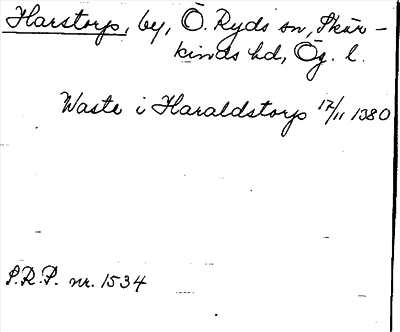 Harstorp, by, Ö. Ryds sn, Skär-
kinds hd, Ög. l.
Waste i Haraldstorp 17/11 1380
S.R.P. nr. 1534